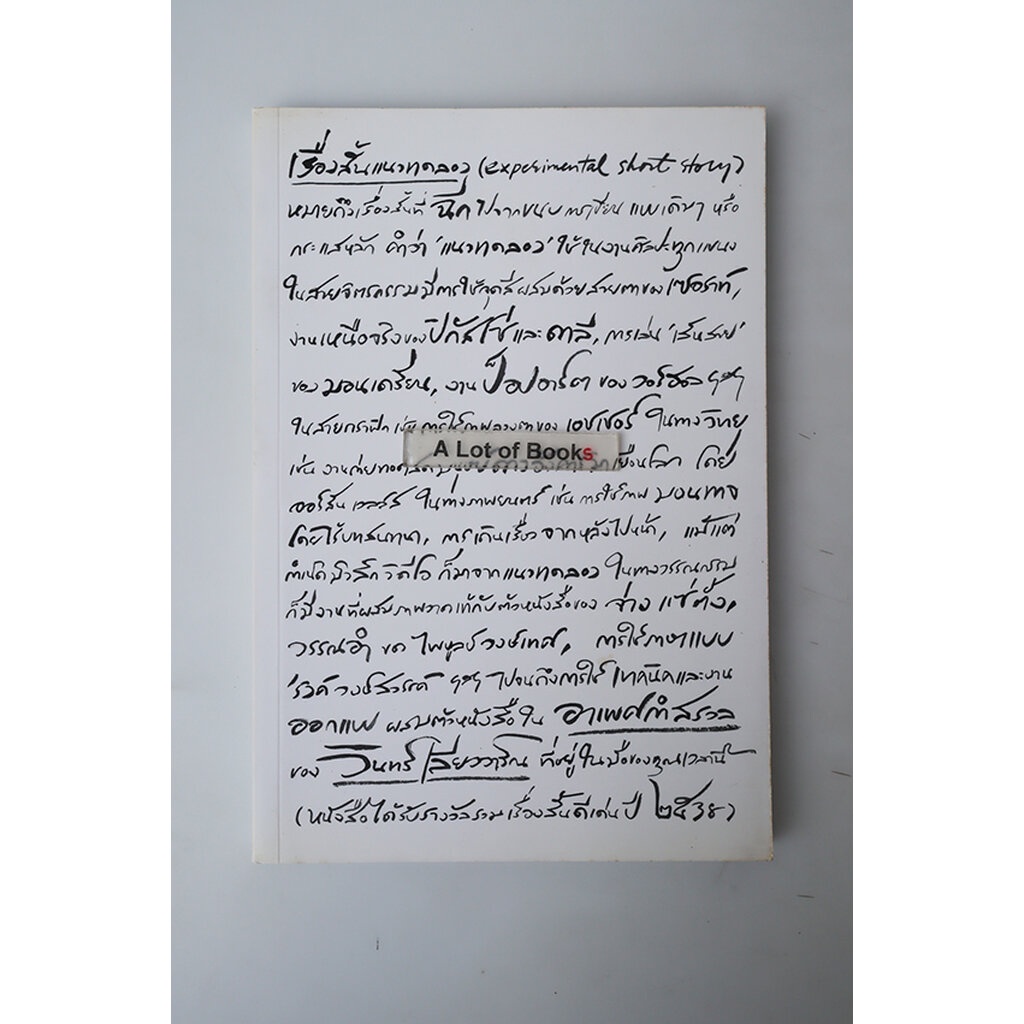 เรื่องสั้นแนวทดลอง (experimental short story)
หมายถึงเรื่องสั้นที่ ฉีกไปจากขนบการเขียน แบบเดิมๆ หรือ
กระแสหลัก คำว่า 'แนวทดลอง' ใช้ในงานศิลปะทุกแขนง
ในสายจิตรกรรมมีการใช้จุดสีผสมด้วยสายตาของเซอราท์,
งานเหนือจริงของปิกัสโซ่และดาลี, การเล่น 'เส้นสาย'
ของ มอนเดรียน, งานป็อปอาร์ต ของ วอร์ฮอล ฯลฯ
ในสายกราฟิก เช่น การใช้ภาพลวงตาของ เอชเชอร์ ในทางวิทยุ
A Lot of Books
เช่น งานถ่ายทอดสด เยือนโลก โดย
ออร์สัน เวลส์ส ในทางภาพยนตร์ เช่น การใช้ภาพ
โดยไร้บทสนทนา, การเดินเรื่องจากหลังไปหน้า, แม้แต่
กำเนิดมิวสิก วิดีโอ ก็มาจากแนวทดลอง ในทางวรรณกรรม
ก็มีงานที่ผสมภาพวาดเท้กับตัวหนังสือของ จ่าง แซ่ตั้ง,
วรรณรำ ของ ไพบูลย์ วงษ์เทศ, การใช้ภาษาแบบ
'รงค์ วงษ์สวรรค์ ฯลฯ ไปจนถึงการใช้ เทคนิคและงาน
ออกแบบ ผสมตัวหนังสือใน อาเพศกำสรวล
ของ วินทร์ เลียววาริณ ที่อยู่ในมือของคุณเวลานี้
(หนังสือได้รับรางวัลรวมเรื่องสั้นดีเด่นปี ๒๕๓๘)